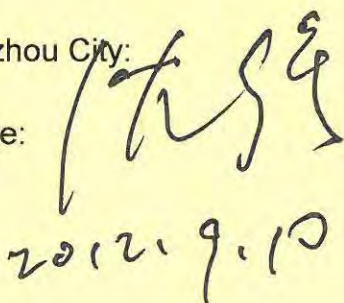 zhou City:
e:
2012.9.10